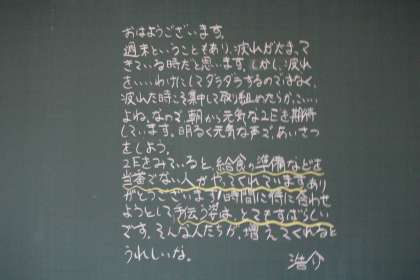 おはようございます。
週末ということもあり、疲れがたまって
きている時だと思います。しかし、疲れ
を……いいわけにしてダラダラするのではなく、
疲れた時こそ集中して取り組めたらかっこいい
よね。なので、朝から元気な2Eを期待
しています。明るく元気な声で、あいさつ
をしよう。
2Eをみていると、給食の準備などを
当番でない人がやってくれています。あり
がとうございます!時間に間に合わせ
ようとして手伝う姿は、とてもすばらしい
です。そんな人たちが、増えてくれると
うれしいな。
浩介